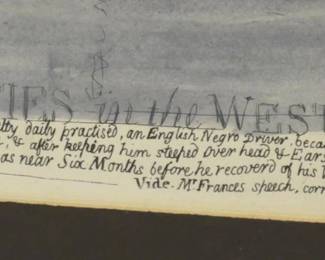 IES in the WEST
lty daily practised, an English Negro Driver, beca
& after keeping him steeped over head & Ears
as near Six Months before he recoverd of his
Vide. Mr Frances speech, corr